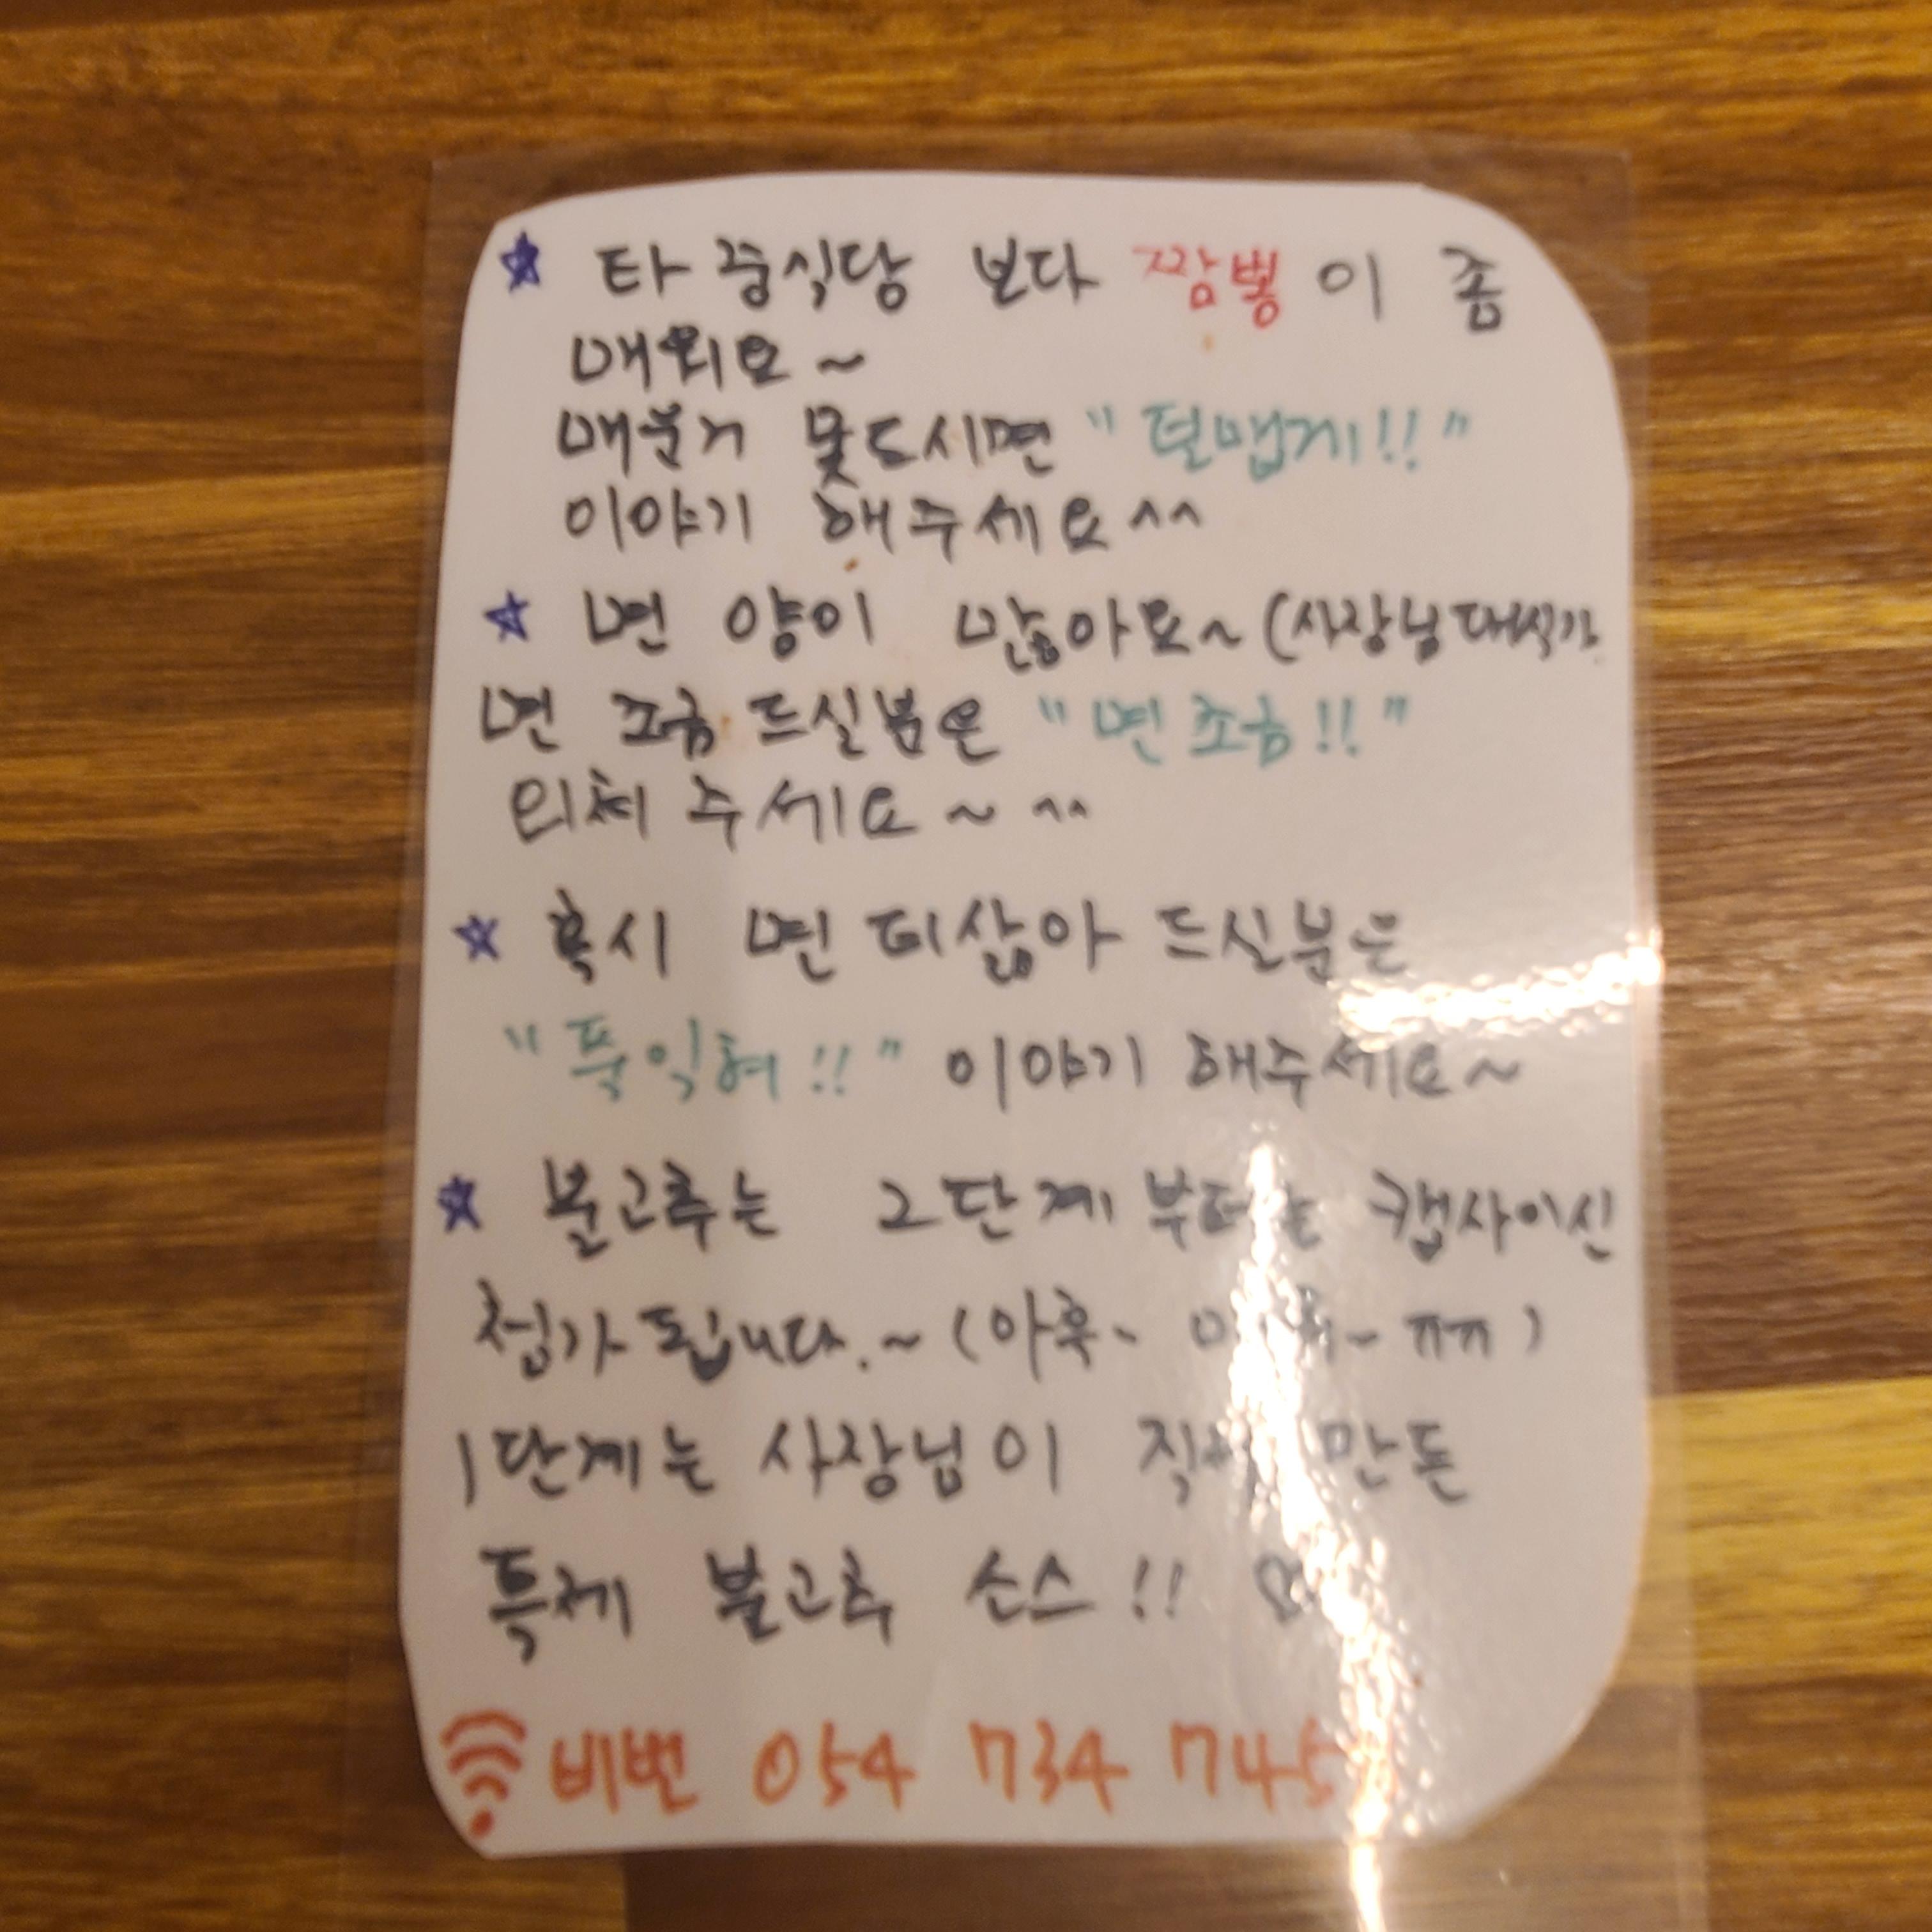 ☆ 타 중식당 보다 짬뽕이 좀
매워요~
매운거 못드시면 "덜맵게!!"
이야기 해주세요^^
☆ 면 양이 많아요~(사장님대식가
면 조금 드실분은 "면조금!!"
외쳐 주세요~ ^^
☆ 혹시 면 더삶아 드실분은
"푹익혀!!" 이야기 해주세요~
☆ 불고추는 2단계 부터는 캡사이신
첨가 됩니다.~(아후~ ㅠㅠ)
1단계는 사장님이 직접 만든
특제 불고추 소스!!
비번 054 734